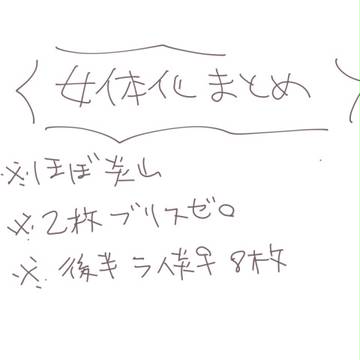 女体化まとめ
※ほぼ炎山
※2枚ブリスゼロ
※後半ライ炎♀8枚